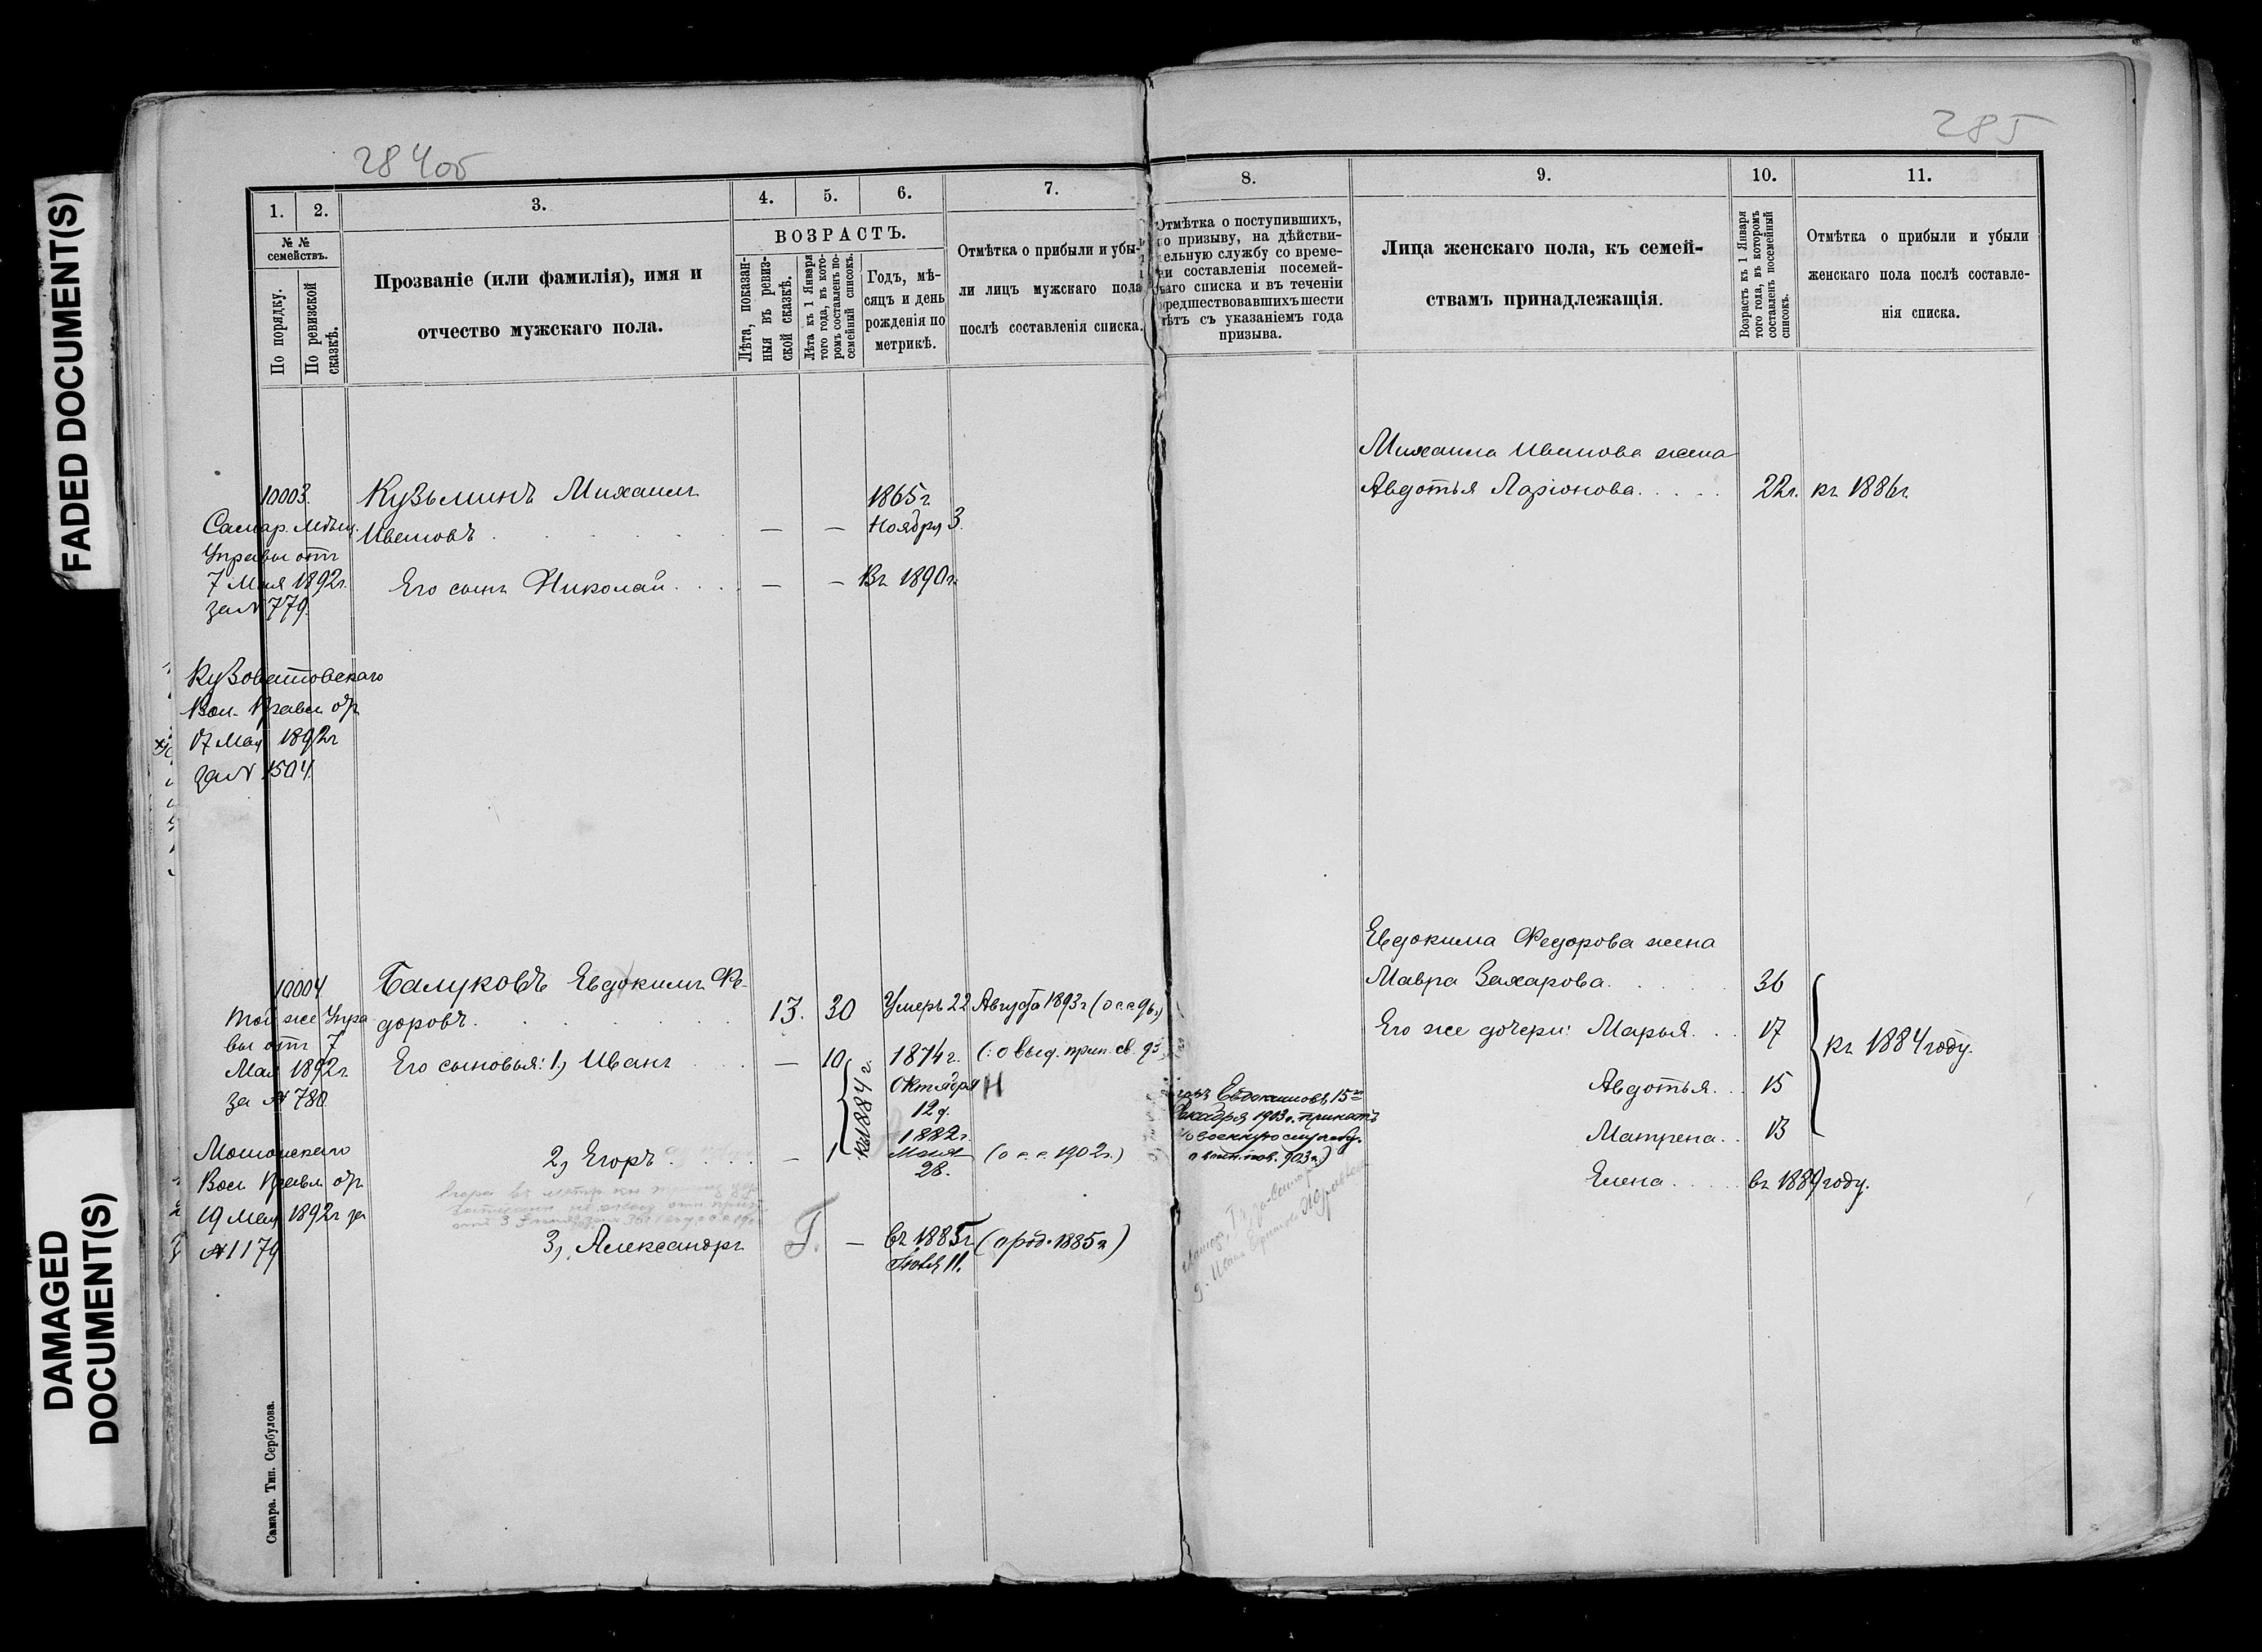 FADED DOCUMENT(S)
DAMAGED
DOCUMENT(S)
284об
285
1.
2.
3.
4.
5.
6.
7.
8.
9.
10.
11.
№ №
семействъ.
По порядку.
По ревизской
сказкѣ.
Прозваніе (или фамилія), имя и
отчество мужскаго пола.
ВОЗРАСТЪ.
Лѣта, показан-
ныя въ ревиз-
ской сказкѣ.
Лѣта къ 1 Января
того года, въ кото-
ромъ составленъ по-
семейный списокъ.
Годъ, мѣ-
сяцъ и день
рожденія по
метрикѣ.
Отмѣтка о прибыли и убы-
ли лицъ мужскаго пола
послѣ составленія списка.
Отмѣтка о поступившихъ,
по призыву, на дѣйстви-
тельную службу со време-
ни составленія посемей-
наго списка и въ теченіи
предшествовавшихъ шести
лѣтъ съ указаніемъ года
призыва.
Лица женскаго пола, къ семей-
ствамъ принадлежащія.
Возрастъ къ 1 Января
того года, въ которомъ
составленъ посемейный
списокъ.
Отмѣтка о прибыли и убыли
женскаго пола послѣ составле-
нія списка.
10003.
Самар. Мѣщ.
Управы отъ
7 Мая 1892г.
за № 779.
Кузьминъ Михаилъ
Ивановъ
— —
1865г.
Ноября 3.
Его сынъ Николай
— —
Въ 1890г.
Михаила Иванова жена
Авдотья Ларіонова
22л. къ 1886г.
Кузоватовскаго
Вол. Правл. от
07 Мая 1892г
за № 1504
10004
Той же Упра
вы отъ 7
Мая 1892г.
за № 780
Балуковъ Евдокимъ Фе-
доровъ
13. 30
Умеръ 22 Августа 1893г.
Его сыновья: 1, Иванъ
— 10
1874г.
Октября
12 д.
Н
къ 1884 г.
2, Егоръ
— 1
1882г.
28.
(о с.с. 1902г.)
3, Александръ
Г. —
въ 1885г. (о род. 1885г.)
Іюня 11.
Евдокимовъ 15го
1903г. принятъ
военную службу.
Евдокима Федорова жена
Мавра Захарова
36
Его же дочери: Марья
17
Авдотья
15
Матрена
13
къ 1884 году.
Елена
въ 1889 году.
Вол. Правл. от
19 Мая 1892г за
№ 1179
Самара. Тип. Сербулова.